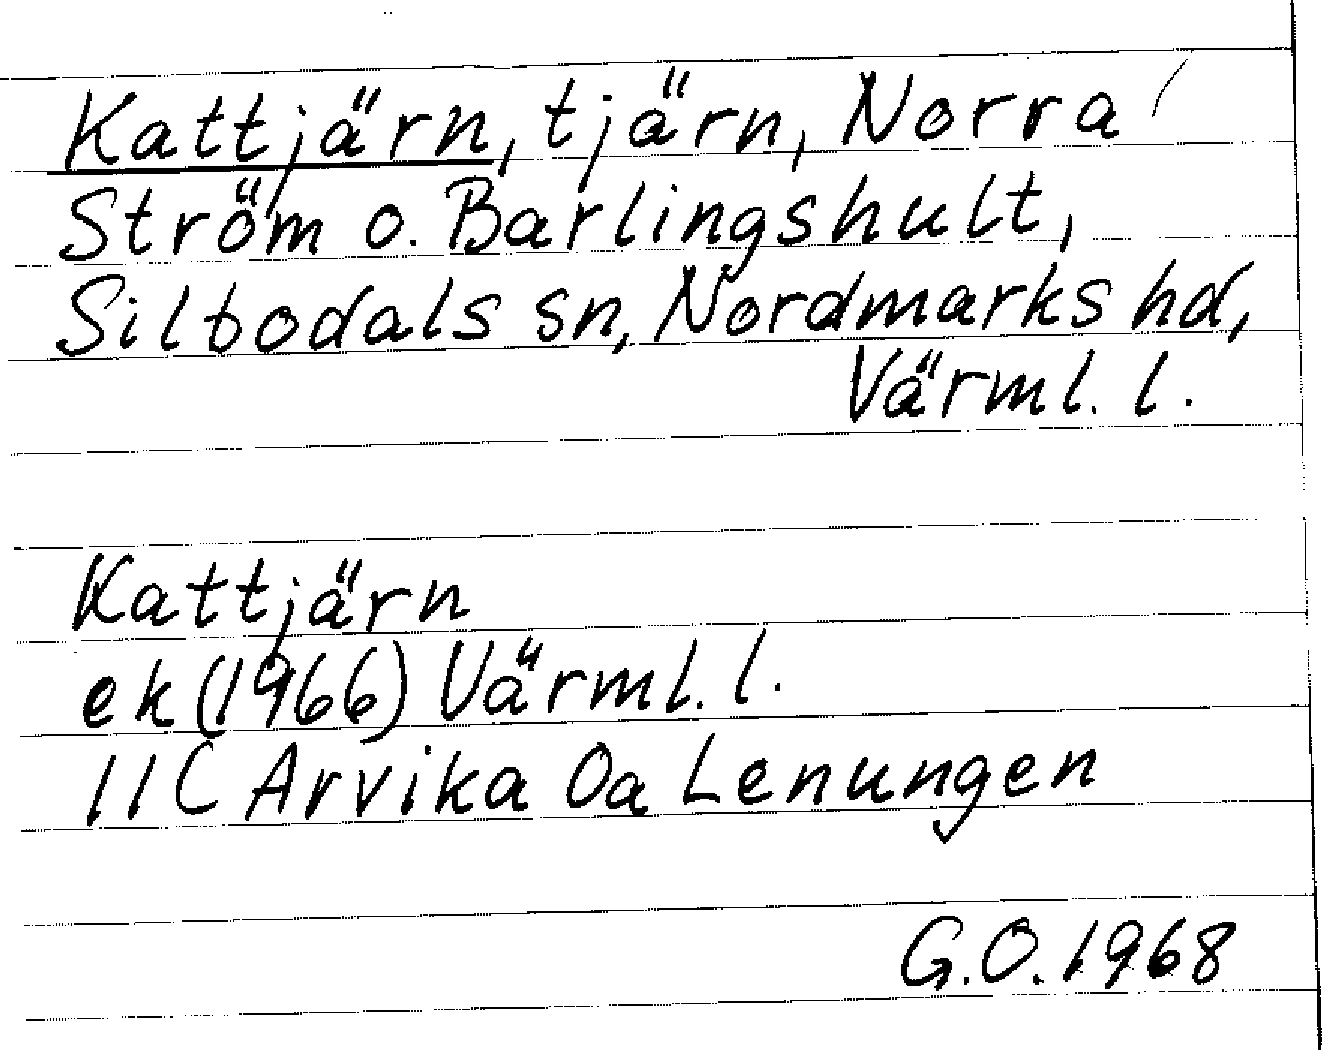 Kattjärn, tjärn, Norra
Ström o. Barlingshult,
Silbodals sn, Nordmarks hd,
Värml. l.
Kattjärn
ek (1966) Värml. l.
11C Arvika 0a Lenungen
G.O. 1968